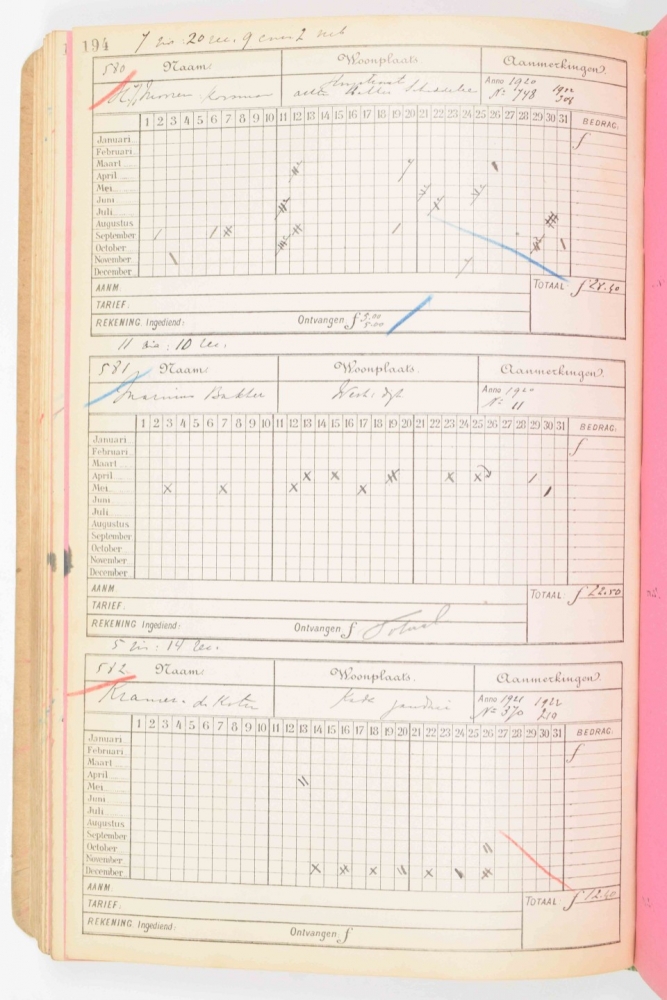 194 7 vis: 20 rec. 9
580 Naam: Woonplaats Aanmerkingen
Anno 1920 1922
No 748
1 2 3 4 5 6 7 8 9 10 11 12 13 14 15 16 17 18 19 20 21 22 23 24 25 26 27 28 29 30 31 BEDRAG.
Januari ƒ
Februari
Maart
April
Mei
Juni
Juli
Augustus
September
October
November
December
AANM. TOTAAL ƒ 28.50
TARIEF:
REKENING. Ingediend: Ontvangen ƒ 5.00
5.00
11 vis: 10 rec.
581 Naam: Woonplaats. Aanmerkingen
Marinus Bakker Anno 1920
No 11
1 2 3 4 5 6 7 8 9 10 11 12 13 14 15 16 17 18 19 20 21 22 23 24 25 26 27 28 29 30 31 BEDRAG.
Januari ƒ
Februari
Maart
April
Mei
Juni
Juli
Augustus
September
October
November
December
AANM. TOTAAL ƒ 22.50
TARIEF.
REKENING Ingediend: Ontvangen ƒ
5 vis: 14 rec.
582 Naam: Woonplaats. Aanmerkingen
Kramer de Koter Anno 1921 1922
No 370 219
1 2 3 4 5 6 7 8 9 10 11 12 13 14 15 16 17 18 19 20 21 22 23 24 25 26 27 28 29 30 31 BEDRAG.
Januari ƒ
Februari
Maart
April
Mei
Juni
Juli
Augustus
September
October
November
December
AANM. TOTAAL ƒ 12.50
TARIEF.
REKENING Ingediend: Ontvangen ƒ